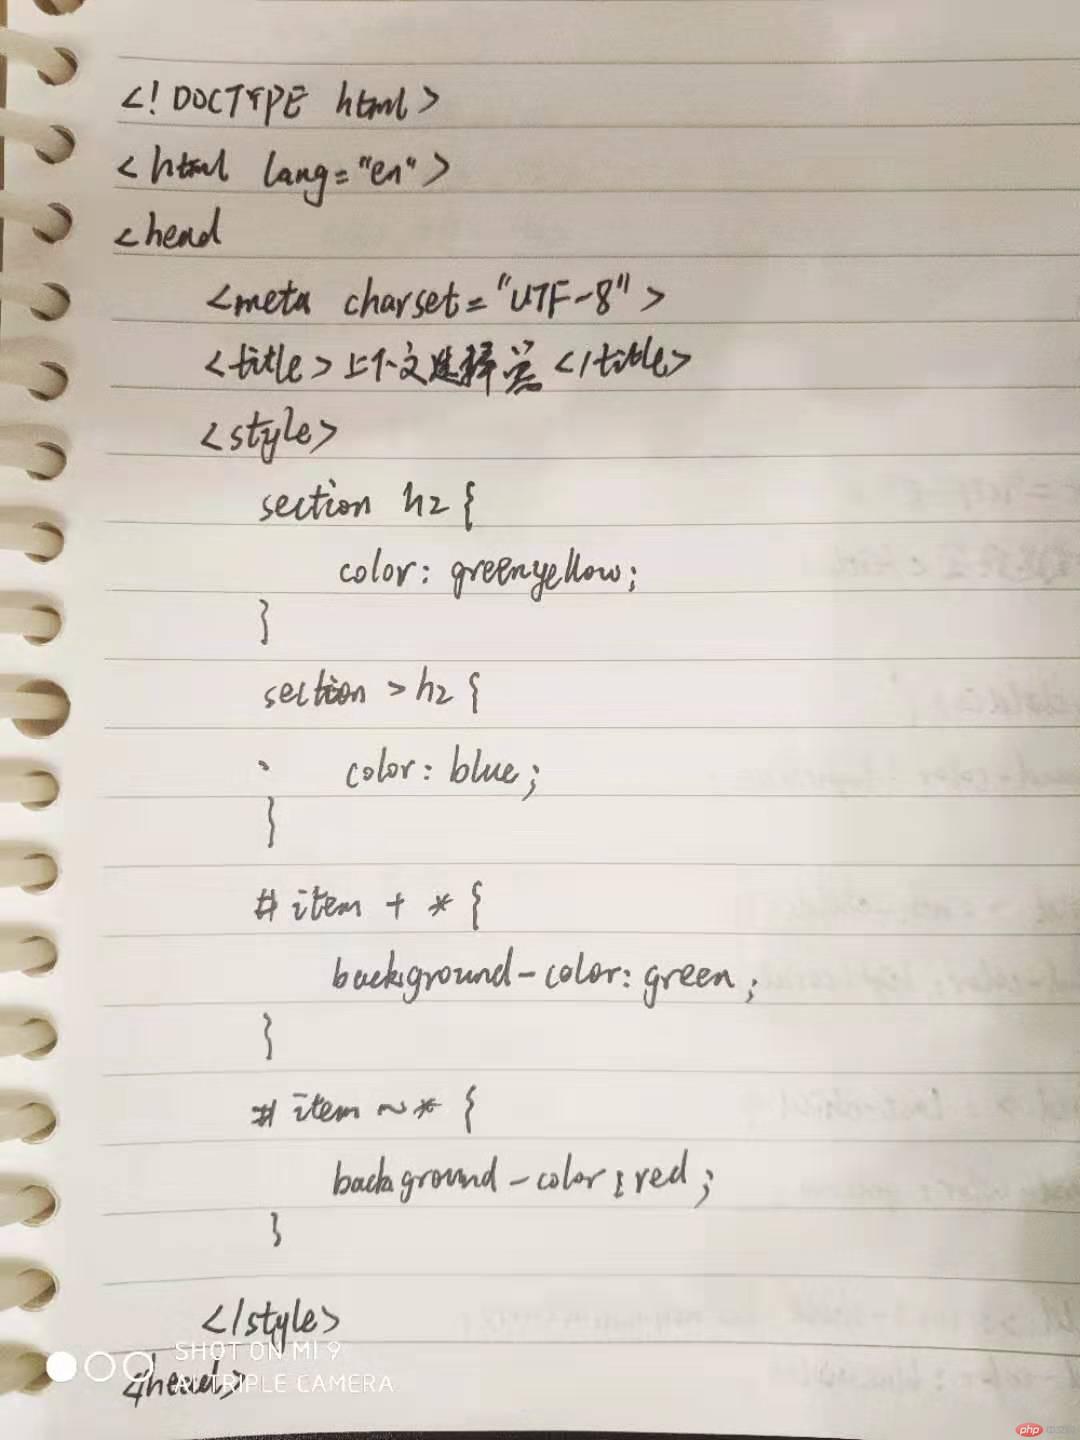 <! DOCTYPE html>
<html lang="en">
<head
<meta charset="UTF-8">
<title>上下文选择器</title>
<style>
section h2 {
color: greenyellow;
}
section > h2 {
color: blue;
}
# item + * {
background-color: green;
}
# item ~ * {
background-color: red;
}
</style>
</head>
SHOT ON MI 9
AI TRIPLE CAMERA
php